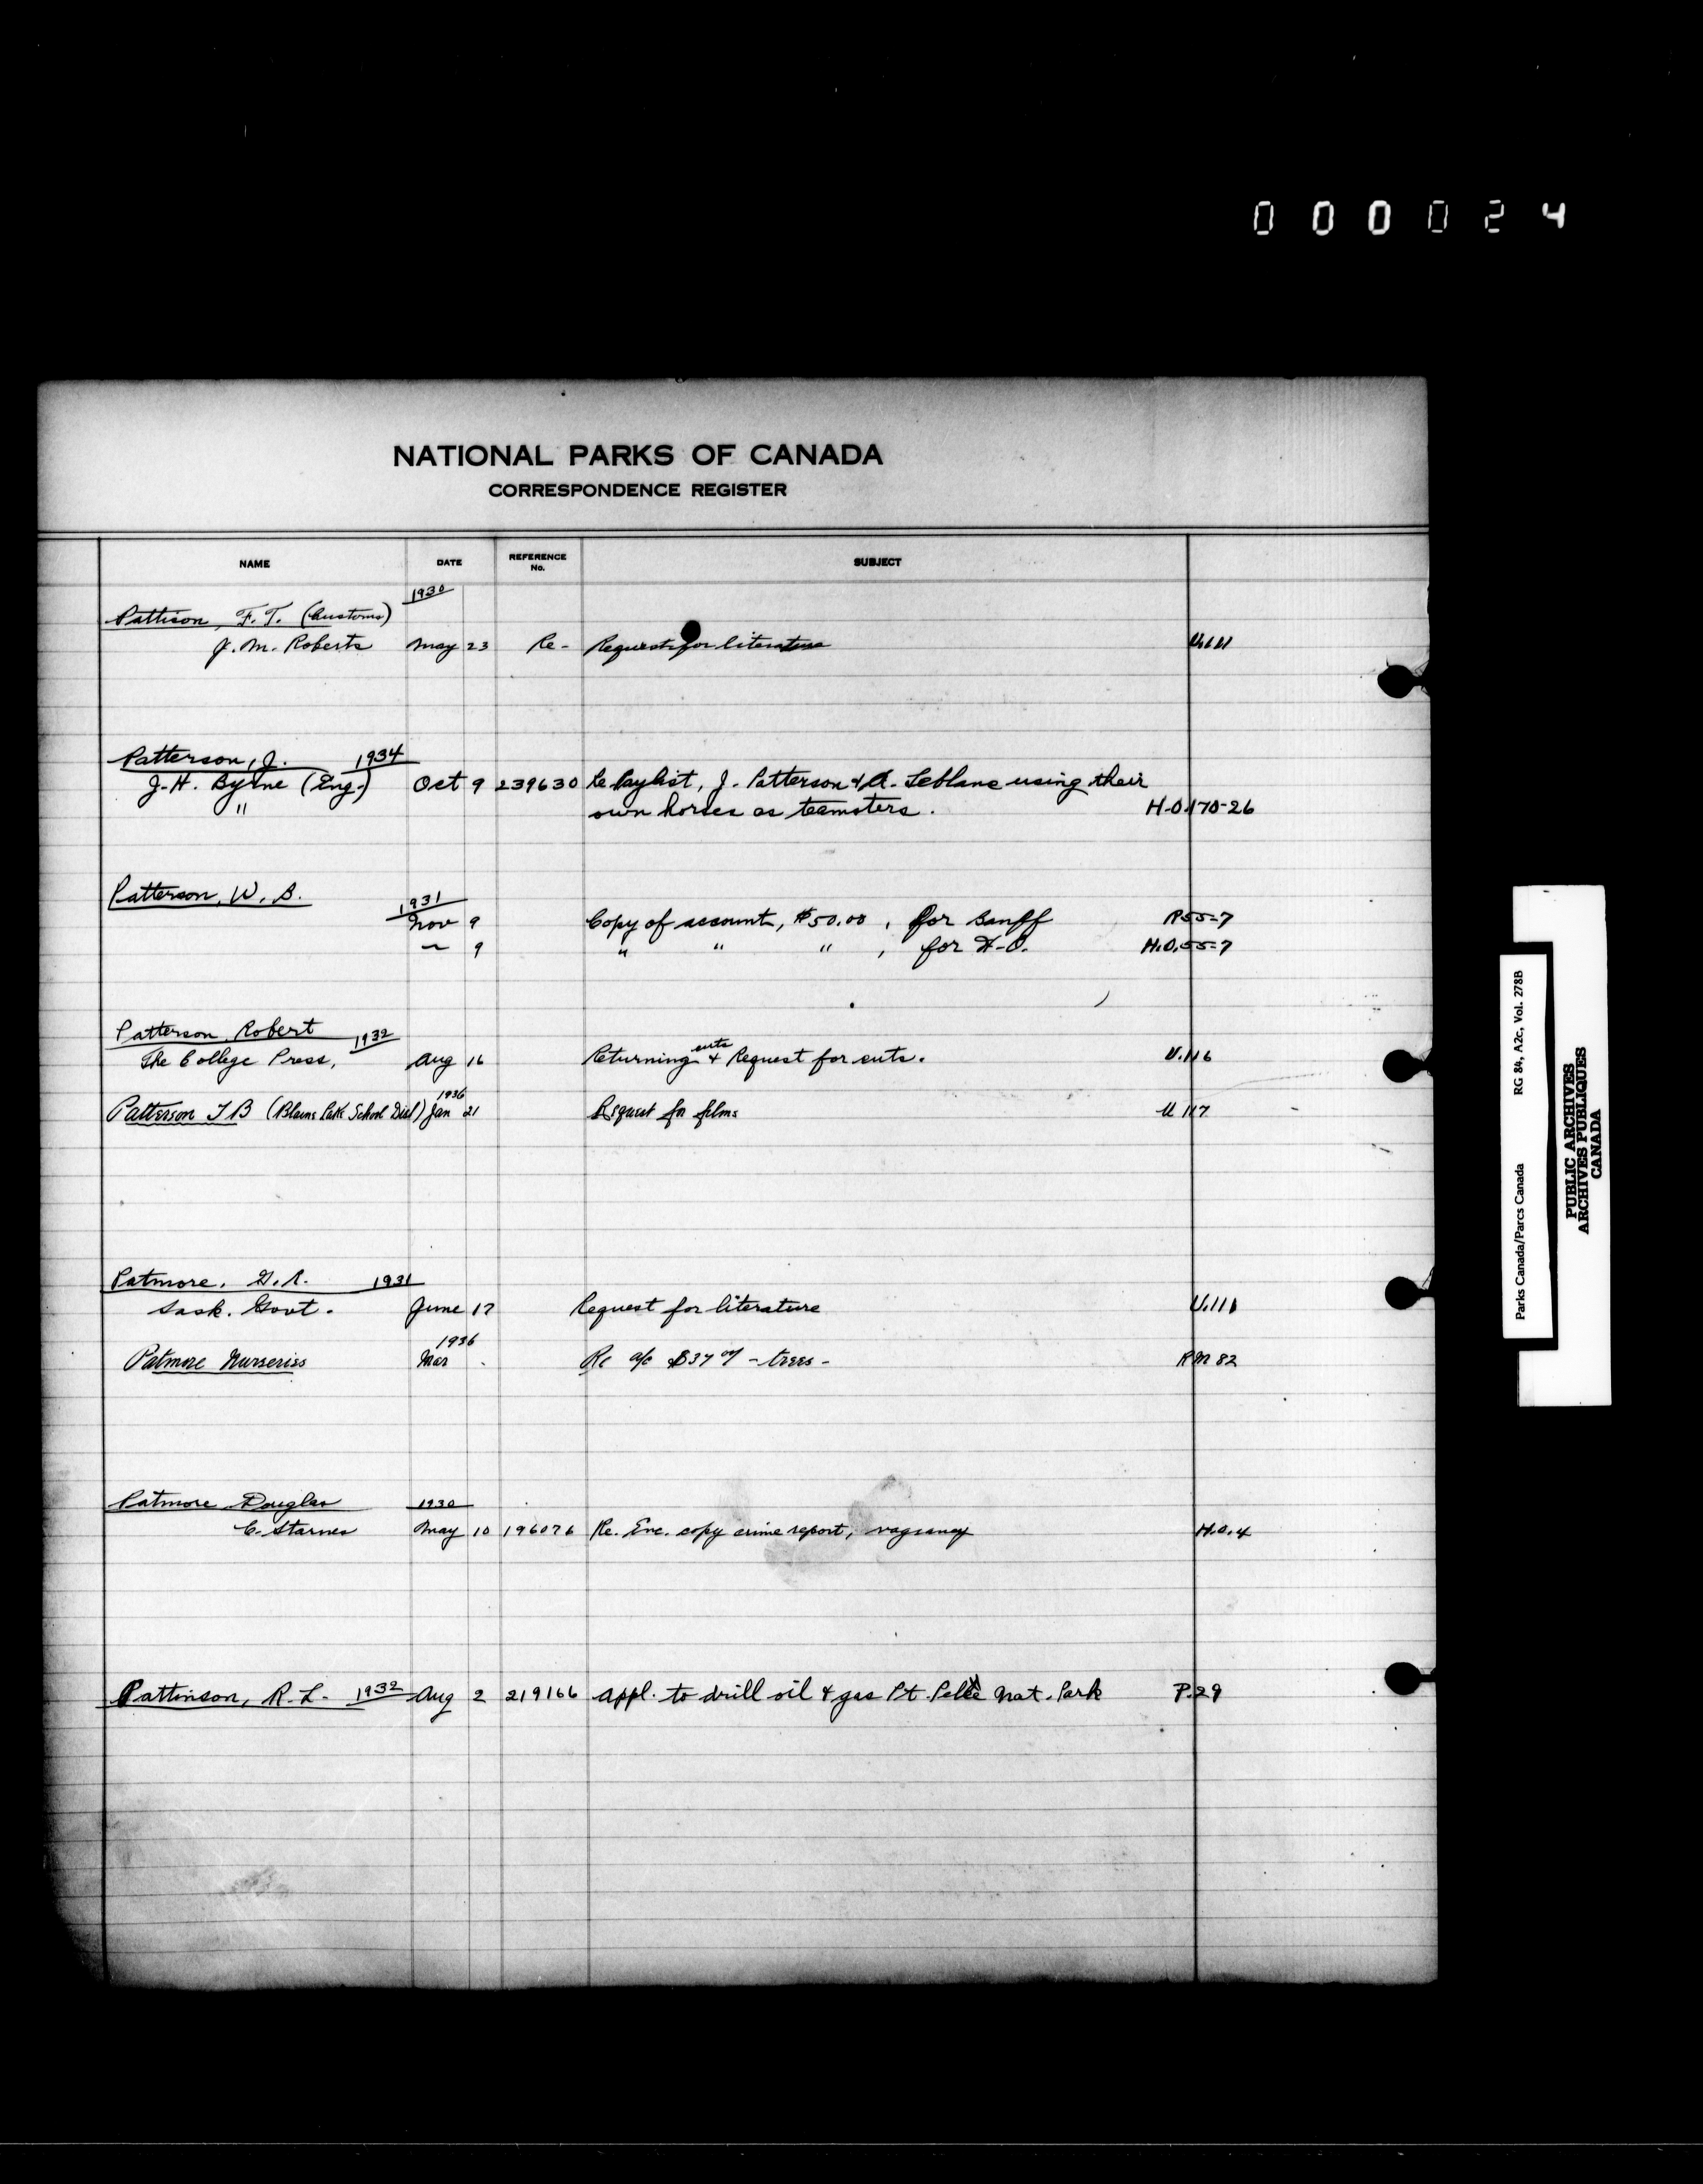 000024
NATIONAL PARKS OF CANADA
CORRESPONDENCE REGISTER
NAME DATE REFERENCE No. SUBJECT
1930
Pattison, F. T. (Customs)
J. M. Roberts May 23 Re- Request for literature U.111
Patterson, J. 1934
J. H. Byrne (Eng.) Oct 9 239630 Re Paylist, J. Patterson & A. Leblanc using their
" own horses as teamsters. H.O.170-26
Patterson, W. B.
1931
Nov 9 Copy of account, $50.00, for Banff R55-7
" 9 " " " , for H-O. H.O.55-7
Patterson, Robert 1932
The College Press, Aug 16 Returning cuts & Request for cuts. U.116
1936
Patterson T B (Blaine Lake School Dist) Jan 21 Request for films U 117
Patmore, G. R. 1931
Sask. Govt. June 17 Request for literature U.111
1936
Patmore Nurseries Mar Re a/c $37 - trees - RM 82
Patmore Douglas 1930
C. Starnes May 10 196076 Re. Enc. copy crime report, vagrancy H.O.4
Pattinson, R. L. 1932 Aug 2 219166 Appl. to drill oil & gas Pt. Pelee Nat. Park P.29
Parks Canada/Parcs Canada RG 84, A2c, Vol. 278B
PUBLIC ARCHIVES
ARCHIVES PUBLIQUES
CANADA